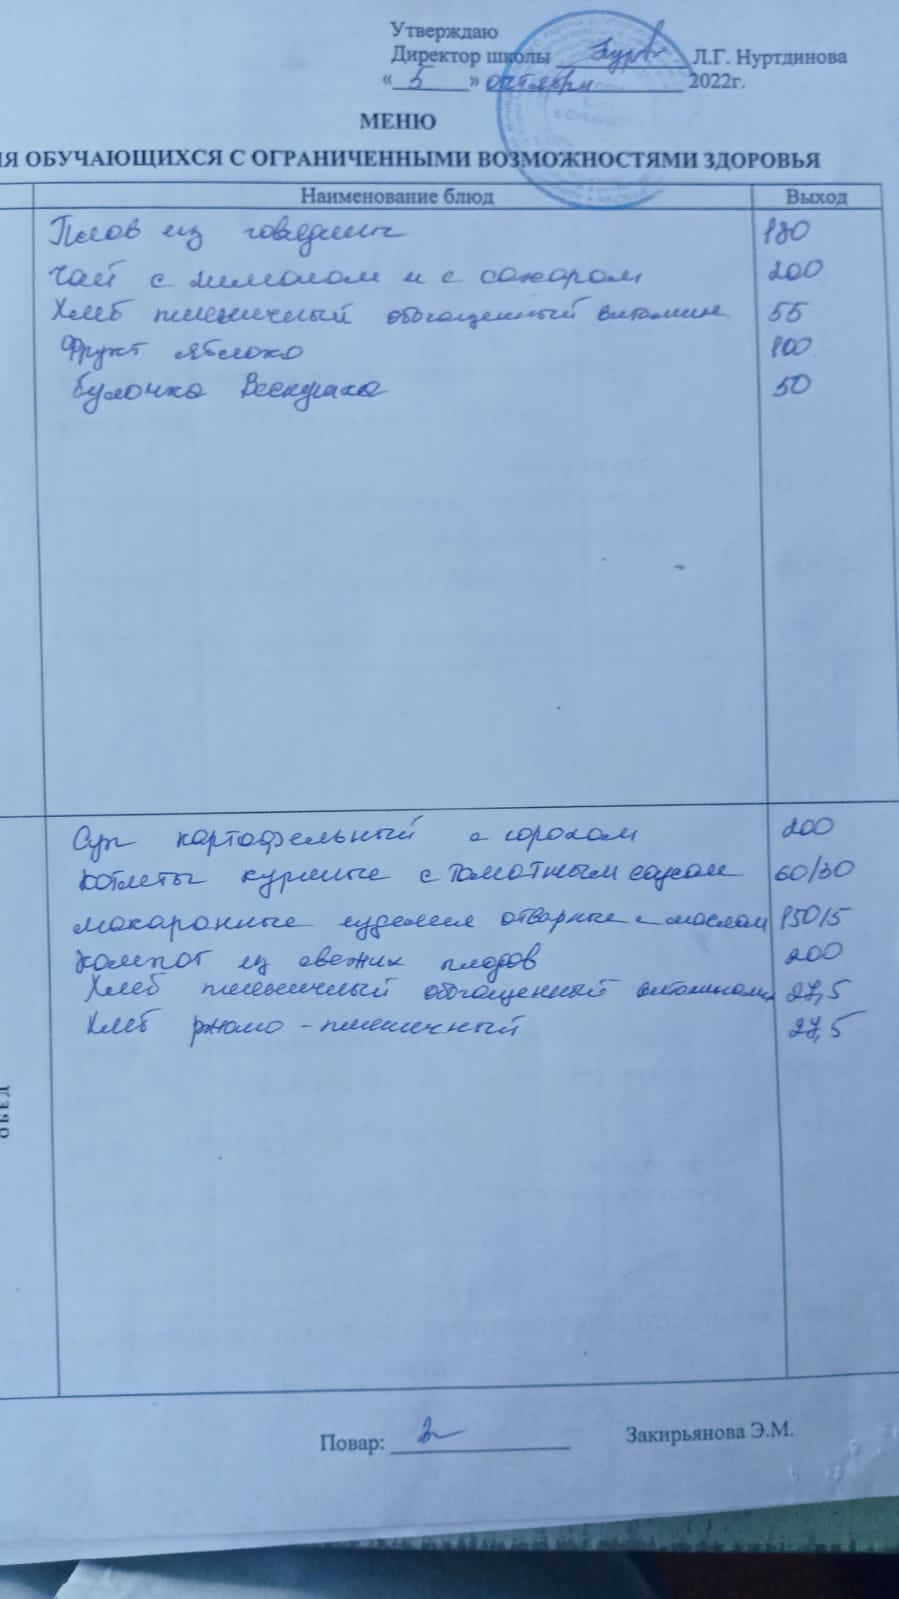 Утверждаю
Директор школы Л.Г. Нуртдинова
« 5 » октября 2022г.
МЕНЮ
ЛЯ ОБУЧАЮЩИХСЯ С ОГРАНИЧЕННЫМИ ВОЗМОЖНОСТЯМИ ЗДОРОВЬЯ
Наименование блюд Выход
Плов из говядины 180
Чай с лимоном и с сахаром 200
Хлеб пшеничный обогащенный витамин 55
Фрукт яблоко 100
Булочка Веснушка 50
Суп картофельный с горохом 200
Котлеты куриные с томатным соусом 60/30
макаронные изделия отварные с маслом 150/5
Компот из свежих плодов 200
Хлеб пшеничный обогащенный витаминами 27,5
Хлеб ржано-пшеничный 27,5
ОБЕД
Повар: Закирьянова Э.М.